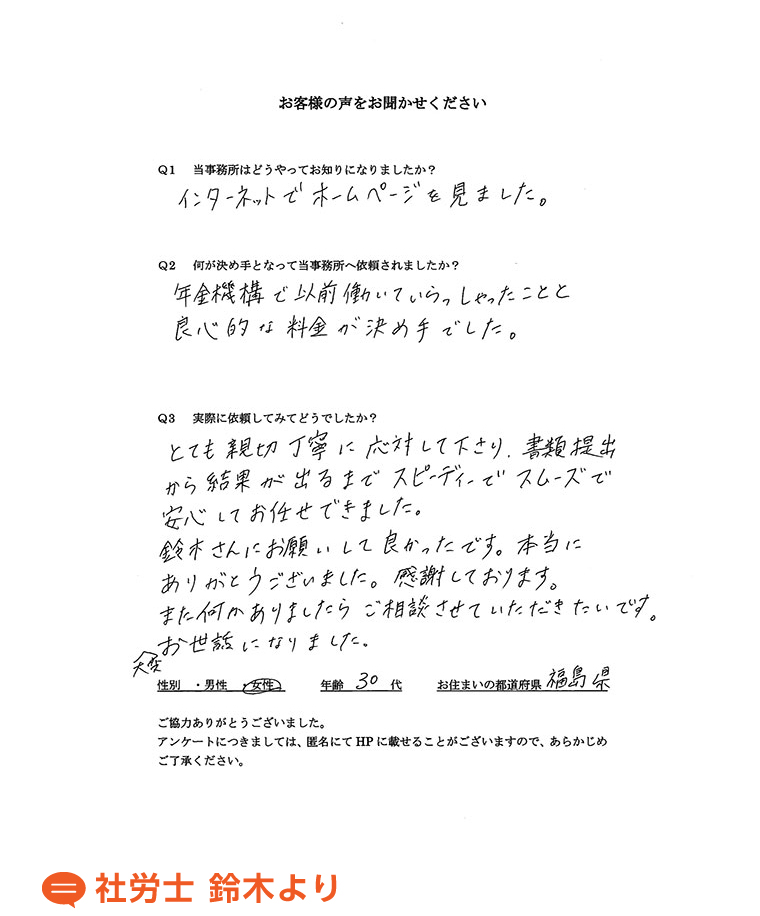 お客様の声をお聞かせください
Q1 当事務所はどうやってお知りになりましたか？
インターネットでホームページを見ました。
Q2 何が決め手となって当事務所へ依頼されましたか？
年金機構で以前働いていらっしゃったことと
良心的な料金が決め手でした。
Q3 実際に依頼してみてどうでしたか？
とても親切丁寧に応対して下さり、書類提出
から結果が出るまでスピーディーでスムーズで
安心してお任せできました。
鈴木さんにお願いして良かったです。本当に
ありがとうございました。感謝しております。
また何かありましたらご相談させていただきたいです。
大変お世話になりました。
性別 ・男性 ・女性 年齢 30 代 お住まいの都道府県 福島県
ご協力ありがとうございました。
アンケートにつきましては、匿名にてHPに載せることがございますので、あらかじめ
ご了承ください。
社労士 鈴木より